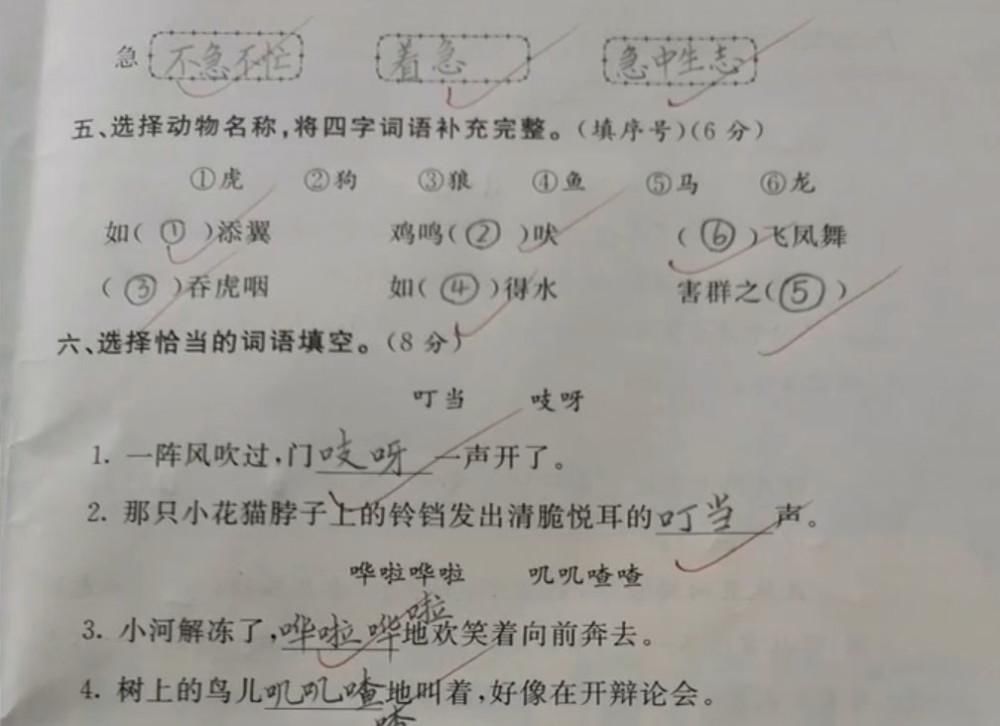 急 不急不忙 着急 急中生志
五、选择动物名称,将四字词语补充完整。(填序号)(6分)
①虎 ②狗 ③狼 ④鱼 ⑤马 ⑥龙
如(①)添翼 鸡鸣(②)吠 (⑥)飞凤舞
(③)吞虎咽 如(④)得水 害群之(⑤)
六、选择恰当的词语填空。(8分)
叮当 吱呀
1. 一阵风吹过,门吱呀一声开了。
2. 那只小花猫脖子上的铃铛发出清脆悦耳的叮当声。
哗啦哗啦 叽叽喳喳
3. 小河解冻了,哗啦哗啦地欢笑着向前奔去。
4. 树上的鸟儿叽叽喳喳地叫着,好像在开辩论会。